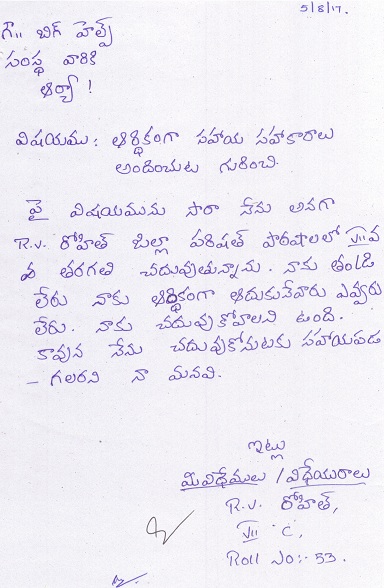 5/8/17.
గౌ॥ బిగ్ హెల్ప్
సంస్థ వారికి
ఆర్యా !
విషయము : ఆర్థికంగా సహాయ సహాకారాలు
అందించుట గురించి.
పై విషయమును సారా నేను అనగా
R.V. రోహిత్ జిల్లా పరిషత్ పాఠశాలలో VII వ
వ తరగతి చదువుతున్నాను. నాకు తండ్రి
లేరు నాకు ఆర్థికంగా ఆదుకునేవారు ఎవ్వరు
లేరు. నాకు చదువుకోవాలని ఉంది.
కావున నేను చదువుకోనుటకు సహాయపడ
- గలరని నా మనవి.
ఇట్లు
మీ విధేములు / విధేయురాలు
R.V. రోహిత్,
VII 'C',
Roll No:- 53.